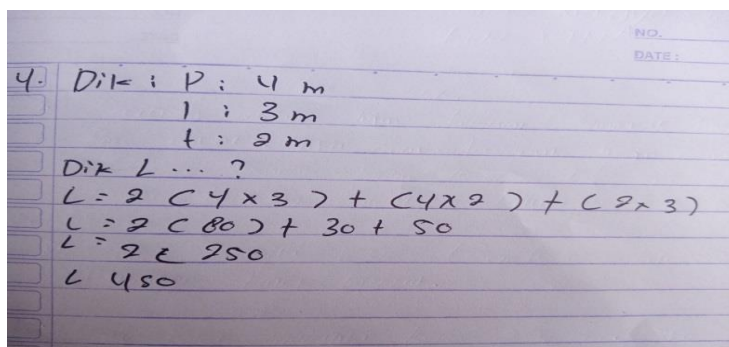 NO.
DATE:
4. Dik : P : 4 m
l : 3 m
t : 2 m
Dik L ... ?
L = 2 ( 4 x 3 ) + ( 4 x 2 ) + ( 2 x 3 )
L = 2 ( 80 ) + 30 + 50
L = 2 ( 250
L 450